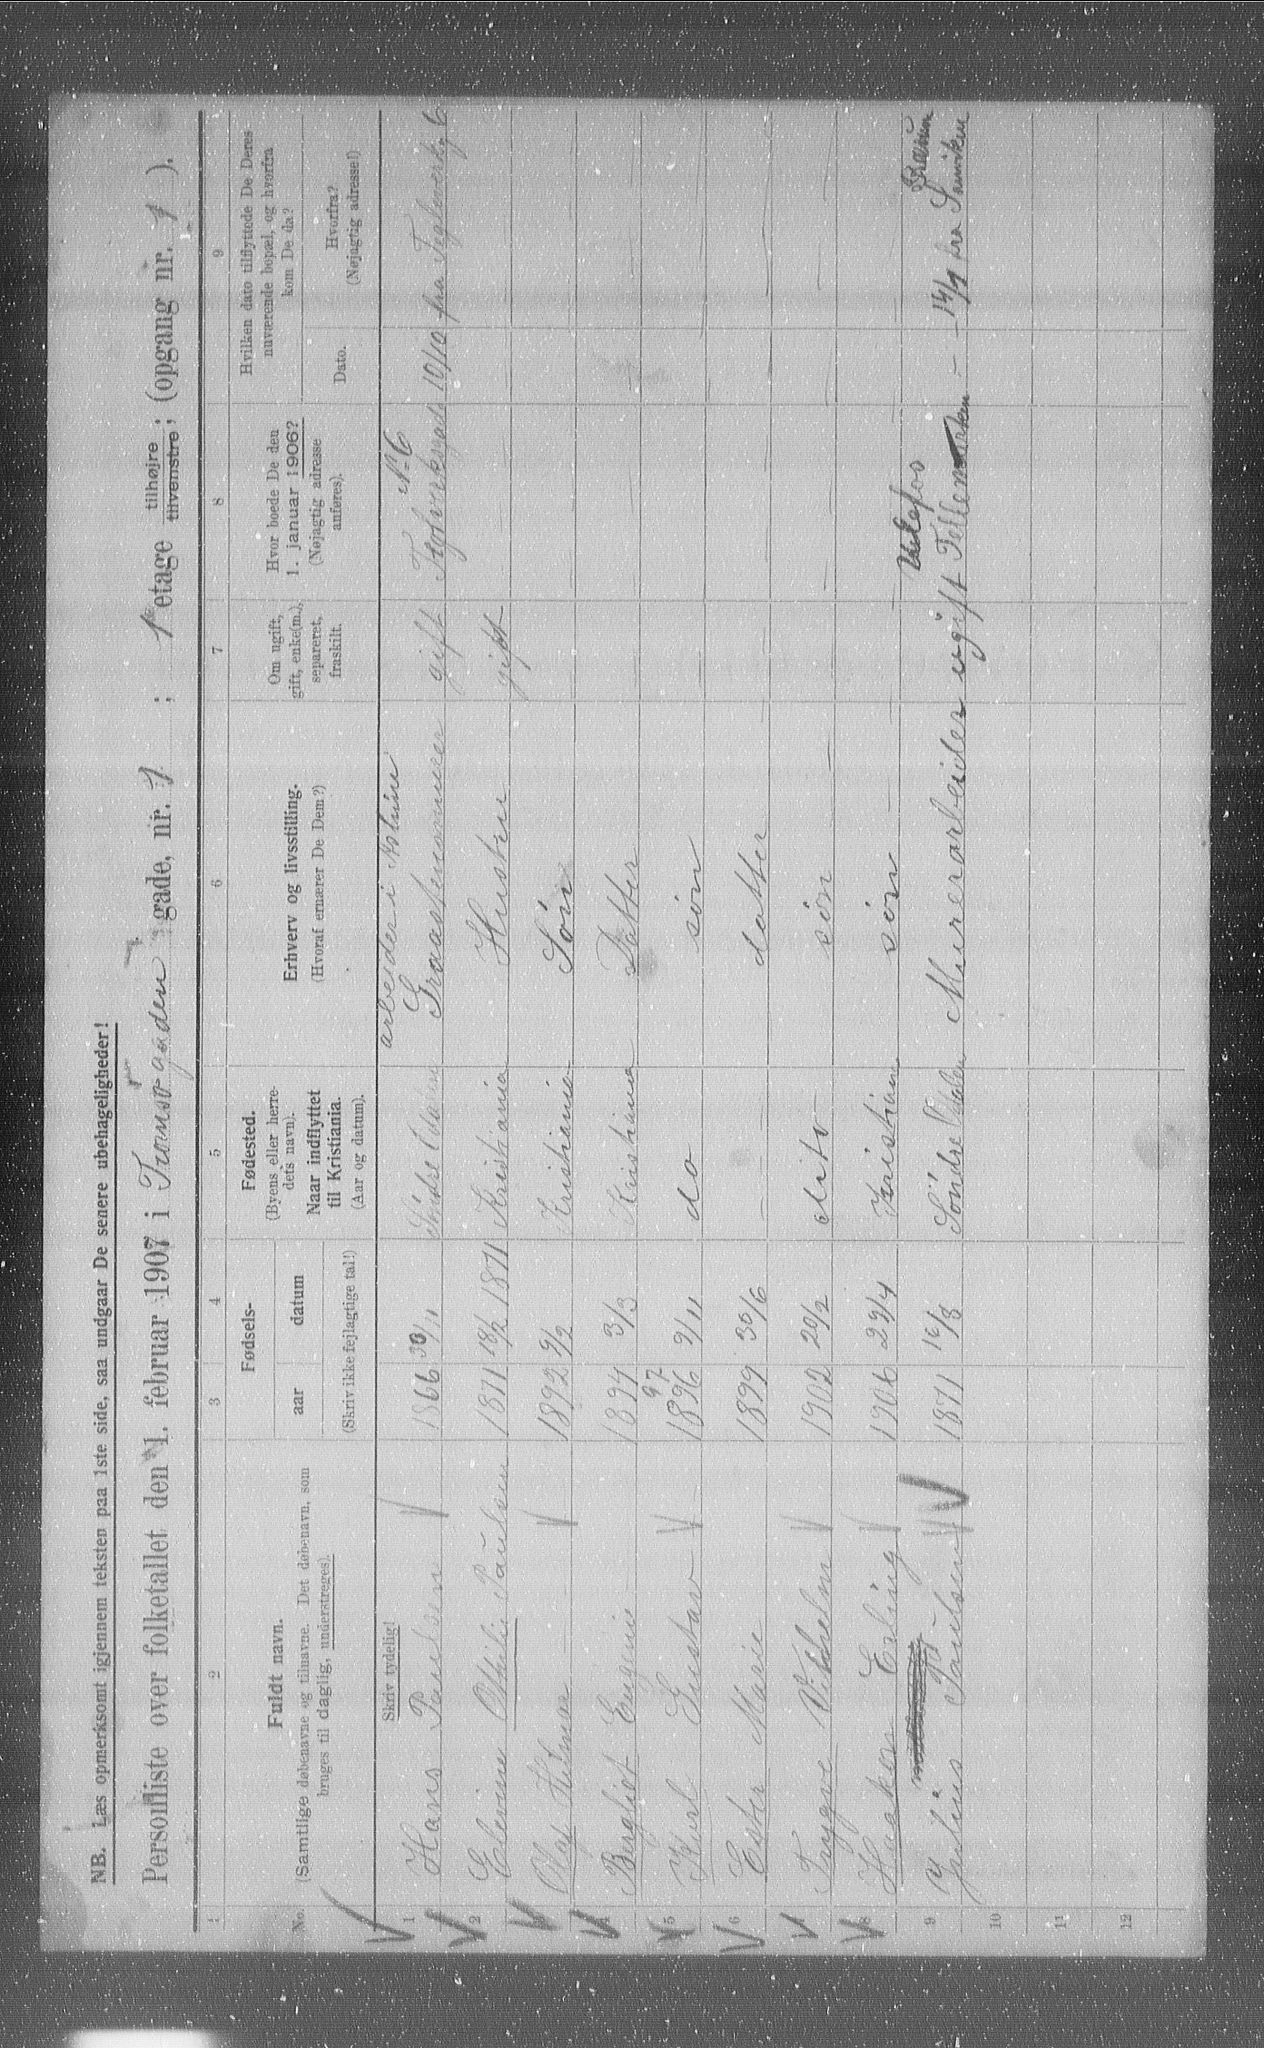 NB. Læs opmerksomt igjennem teksten paa 1ste side, saa undgaar De senere ubehageligheder!
Personliste over folketallet den 1. februar 1907 i Tromsøgaden gade, nr. 1 ; 1ste etage tilhøjre tilvenstre; (opgang nr. 1 ).
1 2 3 4 5 6 7 8 9
No.
Fuldt navn.
(Samtlige døbenavne og tilnavne. Det døbenavn, som
bruges til daglig, understreges).
Fødsels-
aar datum
(Skriv ikke fejlagtige tal!)
Fødested.
(Byens eller herre-
dets navn).
Naar indflyttet
til Kristiania.
(Aar og datum).
Erhverv og livsstilling.
(Hvoraf ernærer De Dem?)
Om ugift,
gift, enke(m.),
separeret,
fraskilt.
Hvor boede De den
1. januar 1906?
(Nøjagtig adresse
anføres).
Hvilken dato tilflyttede De Deres
nuværende bopæl, og hvorfra
kom De da?
Dato.
Hvorfra?
(Nøjagtig adresse!)
Skriv tydelig!
arbeider i
1 Hans Paulsen 1866 30/11 Søndre Odalen gift N-6 10/10 fra Teglverksg 6
2 Elevine Othilie Paulsen 1871 18/2 1871 Kristiania Hustru gift
Olaf Hilmar 1892 9/2 Kristiania Søn
4 Bergliot Eugenie 1894 3/3 Kristiania Datter
97
5 Karl Gustav 1896 9/11 do søn
6 Ester Marie 1899 30/6 — datter
Trygve Vilhelm 1902 20/2 dito søn
8 Haakon Erling 1906 29/4 Kristiania søn
Ulefos Bærum
9 Julius Paulsen 1871 16/8 Søndre Odalen Murerarbeider ugift Tellemarken 14/1 fra Sanviken
10
11
12